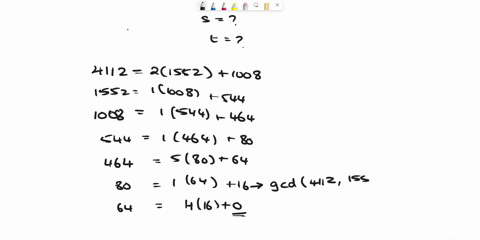 s = ?
t = ?
4112 = 2(1552) + 1008
1552 = 1(1008) + 544
1008 = 1(544) + 464
544 = 1(464) + 80
464 = 5(80) + 64
80 = 1(64) + 16 → gcd(4112, 155
64 = 4(16) + 0